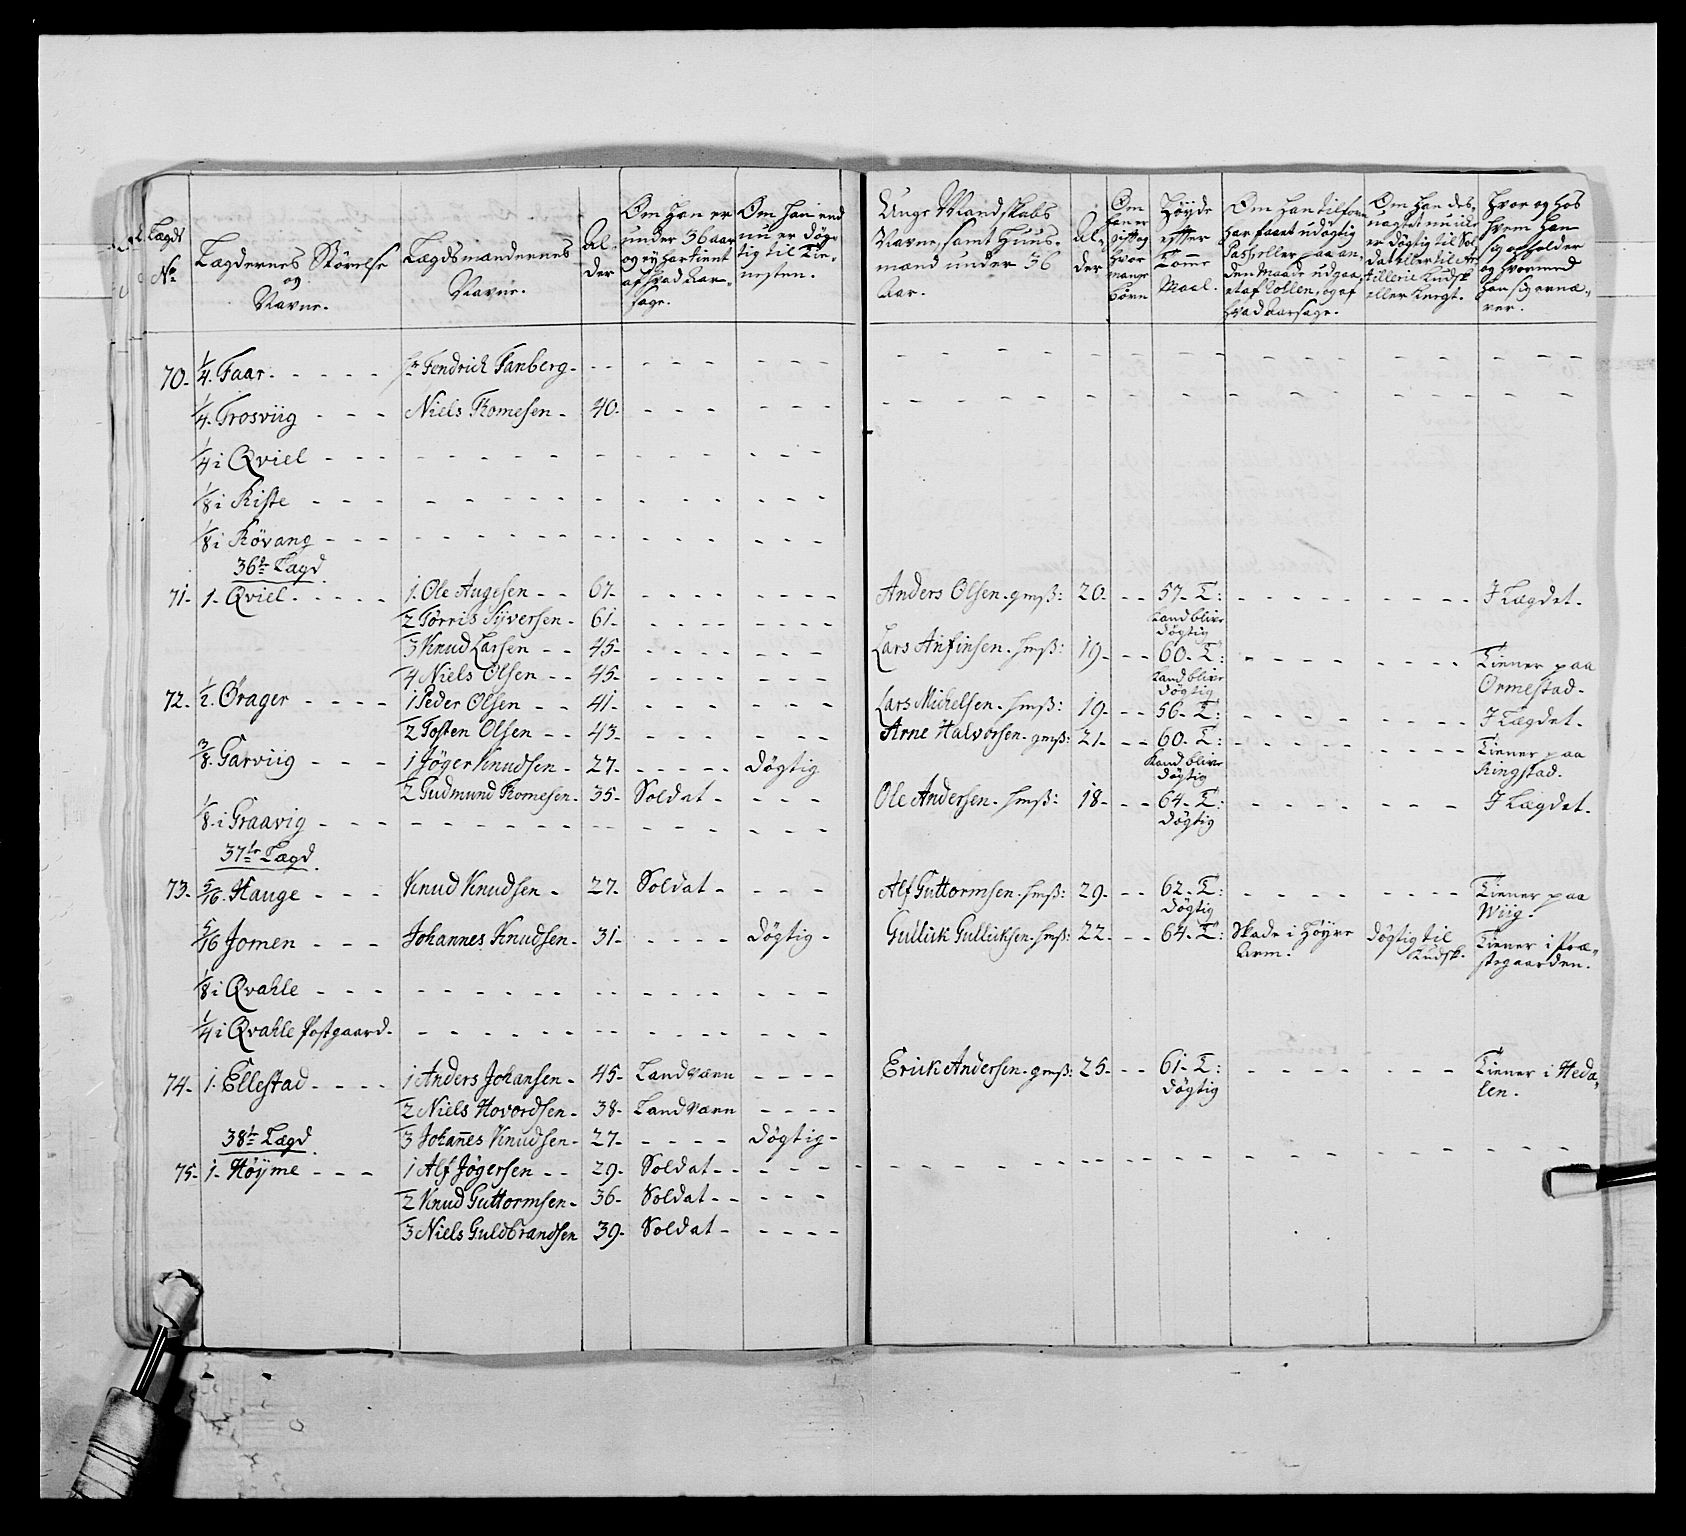 Lægds No
Lægdernes Störelse og Navne.
Lægdsmændernes Navne.
Al- der
Om han er under 36 aar og ey har tient af hvad Aar- sage.
Om han end nu er dög- tig til Tie- nesten.
Unge Mandskabs Navne, samt Huus- mænd under 36 Aar.
Al- der
Om han er gift og hvor mange Börn
Höyde efter Tomme Maal.
Om han tilforn har faaet udögtig Pass, eller paa an- den Maade udgaa- et af Rollen, og af hvad aarsage.
Om han des- uagtet nu ikke er dögtig til Sol- dat eller til Ar- tillerie Kudsk eller Knegt.
Hvor og hos hvem han sig opholder og hvormed han sig ernæ- rer.
70- 1/4. Faar - - - - - Hr Fendrich Fanberg - - - - - - - - -
1/4. Trosviig - - - Niels Romesen - 40 - - - - - -
1/4 i Qviel - - -
1/8 i Riste - - -
1/8 i Rövang - - -
36te Lægd
71- 1- Qviel - - - - - 1. Ole Augesen - - 67- - - - - Anders Olsen - gmss: 20- - - 57- T: Kand blive dögtig - - - - I Lægdet.
2 Törris Syversen - 61-
3 Knud Larsen - - 45- Lars Anfinsen - hmss: 19- - - 60- T: Kand blive dögtig - - - - Tiener paa Ormestad-
4 Niels Olsen - - 45-
72- 1/2. Orager - - - - 1 Peder Olsen - - 41- Lars Michelsen - hmss: 19- - - 56- T: - - - - I Lægdet.
2 Tosten Olsen - - 43- Arne Halvorsen - gmss: 21- - - 60- T: Kand blive dögtig - - - - Tiener paa Ringstad.
3/8. Garviig - - - 1 Jöger Knudsen - 27- - - - - dögtig
2 Gudmund Romesen- 35- Soldat - - - - Ole Andersen - hmss: 18- - - 64- T: dögtig - - - - I Lægdet.
1/8. i Graavig - - -
37te Lægd
73- 5/16. Hauge - - - Knud Knudsen - 27- Soldat - - - - Alf Guttormsen - hmss: 29- - - 62- T: dögtig - - - - Tiener paa Wiig-
5/16 Jomen - - - Johannes Knudsen- 31- - - - - dögtig - Gullick Gullicksen - hmss: 22- - - 64- T: Skade i Höyre Arm. dögtig til Kudsk- Tiener i Præ- stegaarden.
1/8 i Qvahle - - -
1/4 i Qvahle Postgaard-
74- 1. Ellestad - - - - 1 Anders Johansen- 45- Landværn - - - - Erick Andersen - gmss: 25- - - 61- T: dögtig - - - - Tiener i Heda- len.
2 Niels Hovordsen- 38- Landværn - - - -
38te Lægd 3 Johannes Knudsen- 27- - - - - dögtig -
75- 1- Höyme - - - 1 Alf Jögersen - - 29- Soldat - - - - -
2 Knud Guttormsen- 36- Soldat - - - - -
3 Niels Guldbrandsen 39- Soldat - - - - -